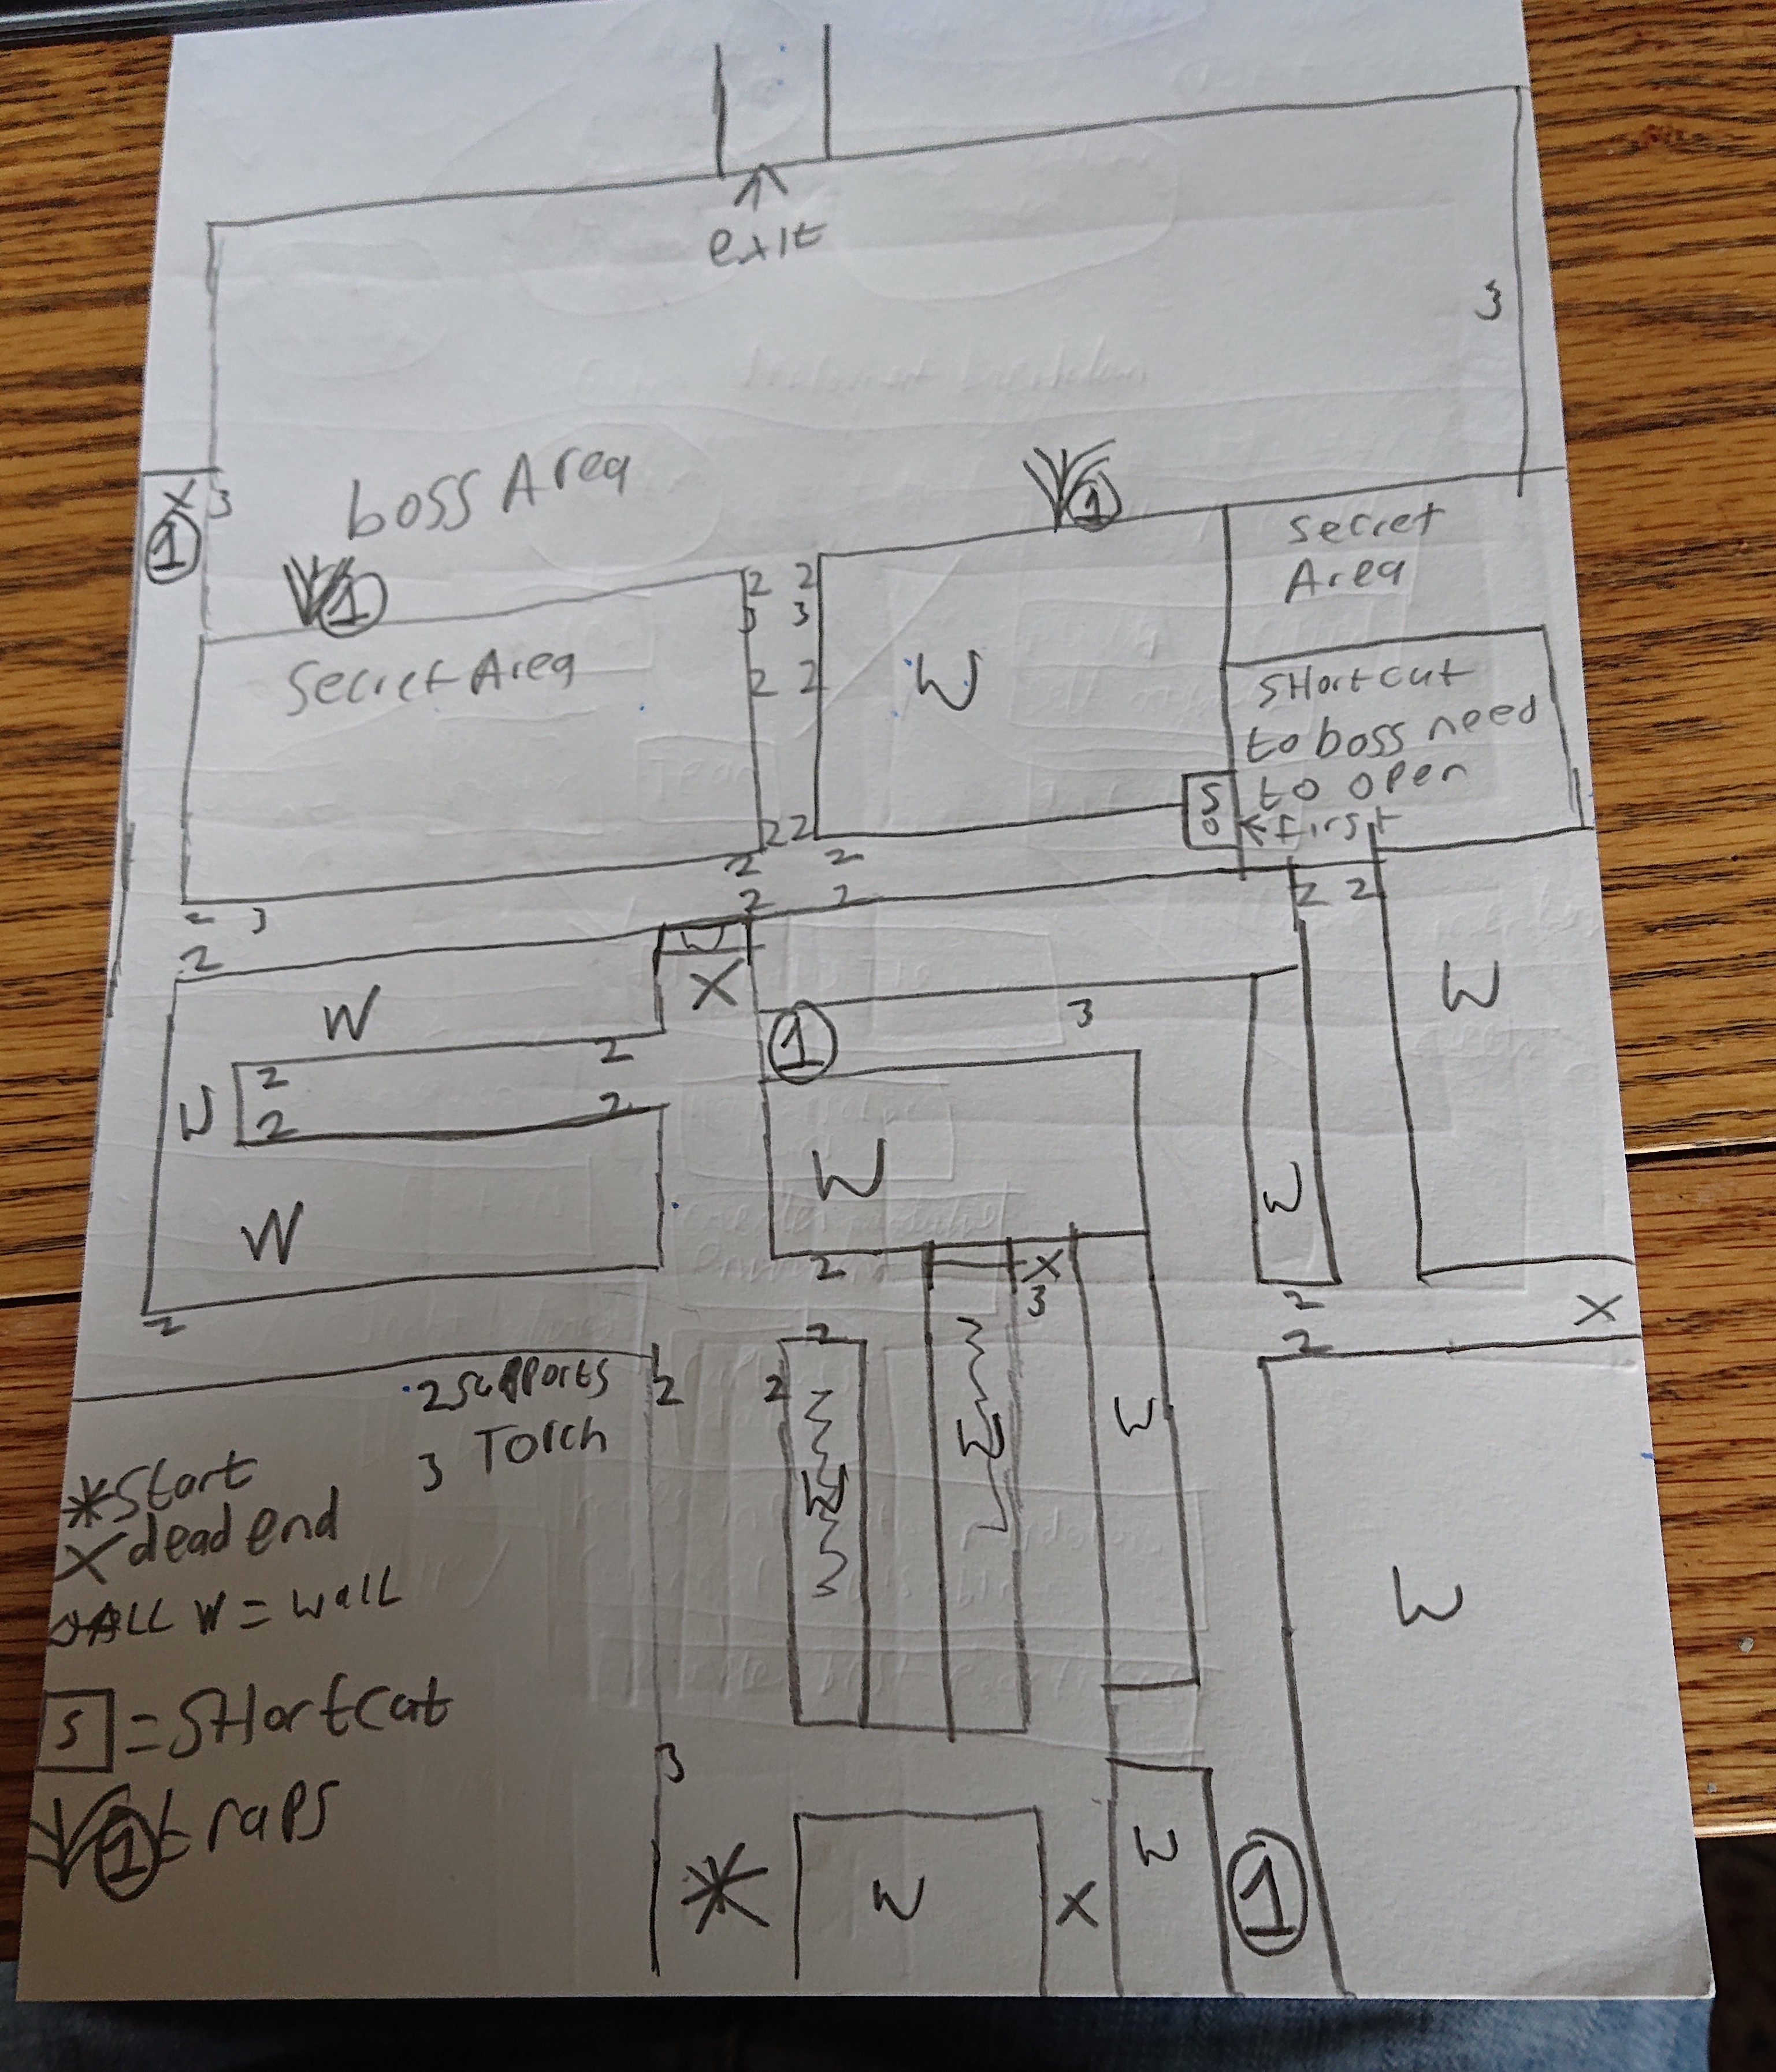 exit
3
X 3
1
boss Area
1
1
Secret
Area
2 2
3 3
Secret Area
2 2
W
SHortcut
to boss need
S to open
o ←first
2 2
2 2
2 3
2 2
2 2
2
W
X
W
W
1
3
2
2
W
2
2
W
W
W
W
2
X
3
2
2
X
2
2
2 supports
3 Torch
2
2
W
W
W
W
*Start
X dead end
ALL W = wall
S = SHortcut
1 traps
3
W
X
W
1